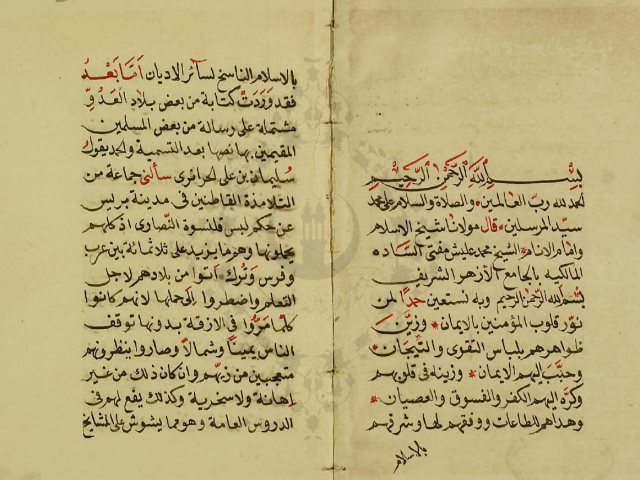 بسم الله الرحمن الرحيم
الحمد لله رب العالمين والصلاة والسلام على محمد
سيد المرسلين قال مولانا شيخ الاسلام
وامام الانام الشيخ محمد عليش مفتي السادة
المالكيه بالجامع الأزهر الشريف
بسم الله الرحمن الرحيم وبه نستعين حمدا لمن
نوّر قلوب المؤمنين بالايمان وزيّن
ظواهرهم بلباس التقوى والتيجان
وحبّب اليهم الايمان وزينه في قلوبهم
وكرّه اليهم الكفر والفسوق والعصيان
وهداهم للطاعات ووفقهم لها وشرفهم
بالاسلام
بالاسلام الناسخ لسائر الاديان أمّا بَعْدُ
فقد وَرَدَتْ كتابة من بعض بلاد العَدُوِّ
مشتملة على رسالة من بعض المسلمين
المقيمين بها نصها بعد التسمية والحمد يقول
سُليمان بن علي الحرائرى سألنى جماعة من
التلامذة القاطنين في مدينة بريس
عن حكم لبس قلنسوة النصاوى اذ كلهم
يحملونها وهم ما يزيد على ثلاثمائة بين عرب
وفرس وتُرك أتوا من بلادهم لاجل
التعلم واضطروا الى حملها لانهم كانوا
كلما مَرُّوا في الازقة بدونها توقف
الناس يميناً وشمالاً وصاروا ينظرونهم
متعجبين من زيّهم وان كان ذلك من غير
إهانة ولا سخرية وكذلك يقع لهم في
الدروس العامة وهو مما يشوش على المشايخ